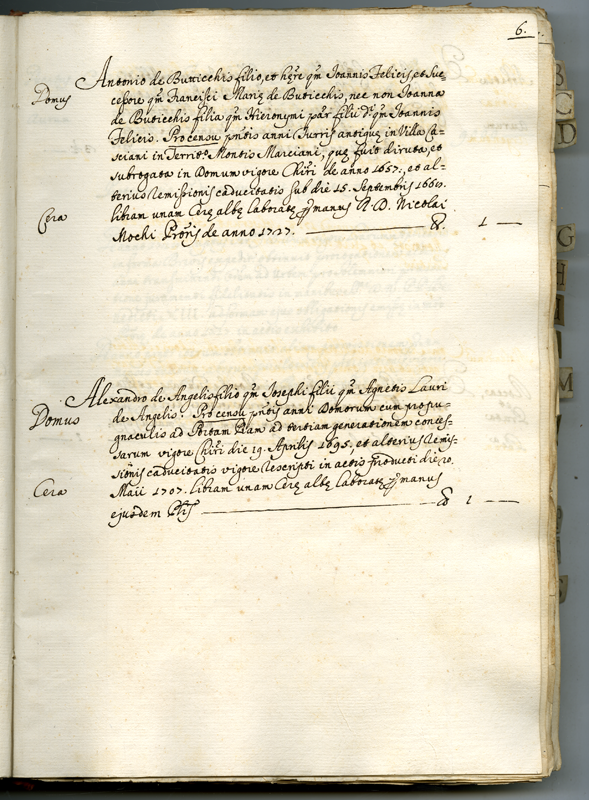 6.
Antonio de Buticchis filio, et hęre qm Joannis Felicis, et Suc-
Domus cessore qm Francisci Marię de Buticchis, nec non Joanna
de Buticchis filia qm Hieronymi par filii di qm Joannis
Felicis. Pro censu pntis anni Turris antiquę in Villa Ca-
sciani in Territo Montis Marciani, quę fuit diruta, et
subrogata in Domum vigore Chiri de anno 1657, et al-
terius remissionis caducitatis sub die 15. Septembris 1664.
Cera libram unam Cerę albę laboratę p manus R. D. Nicolai
Mochi Proris de anno 1727. 1
Alexandro de Angelis filio qm Josephi filii qm Agnetis Lauri
Domus de Angelis. Pro censu pntis anni Domorum cum propu-
gnaculo ad Portam Plam ad tertiam generationem conces-
sarum vigore Chiri die 19. Aprilis 1695, et alterius remis-
sionis caducitatis vigore rescripti in actis producti die 20.
Cera Maii 1707. libram unam Cerę albę laboratę p manus
ejusdem Pris 1
B
C
D
G
H
I
M
S